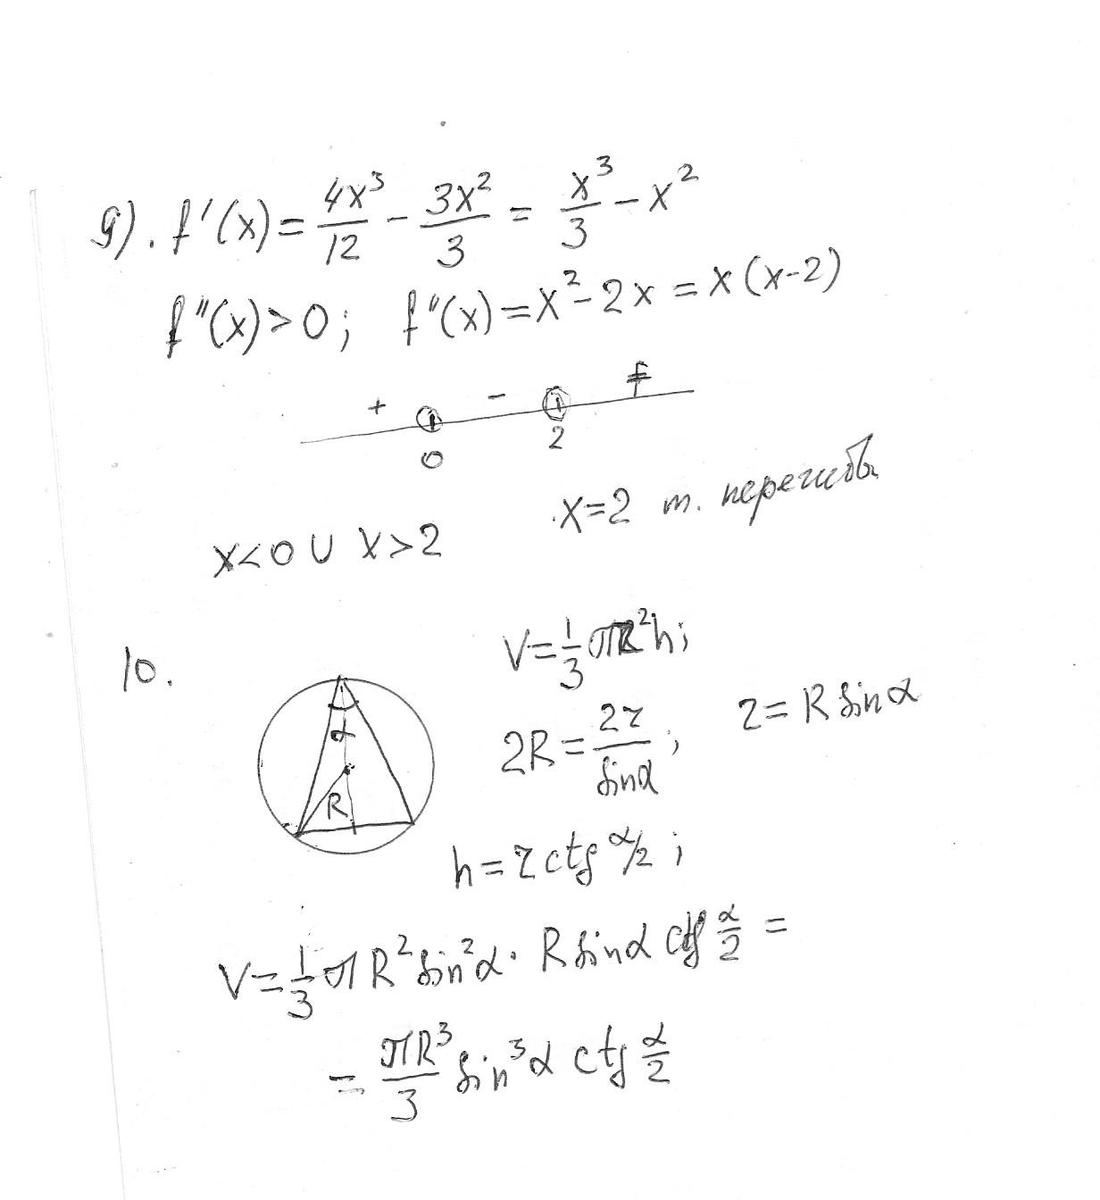 9). f'(x) = 4x³/12 - 3x²/3 = x³/3 - x²
f''(x) > 0; f''(x) = x² - 2x = x(x-2)
+ - +
0 2
x=2 т. перегиба
x<0 ∪ x>2
10.
V = 1/3 πR²h;
α
R
2R = 2r/sinα; r = R sinα
h = r ctg α/2;
V = 1/3 πR² sin²α · R sinα ctg α/2 =
= πR³/3 sin³α ctg α/2